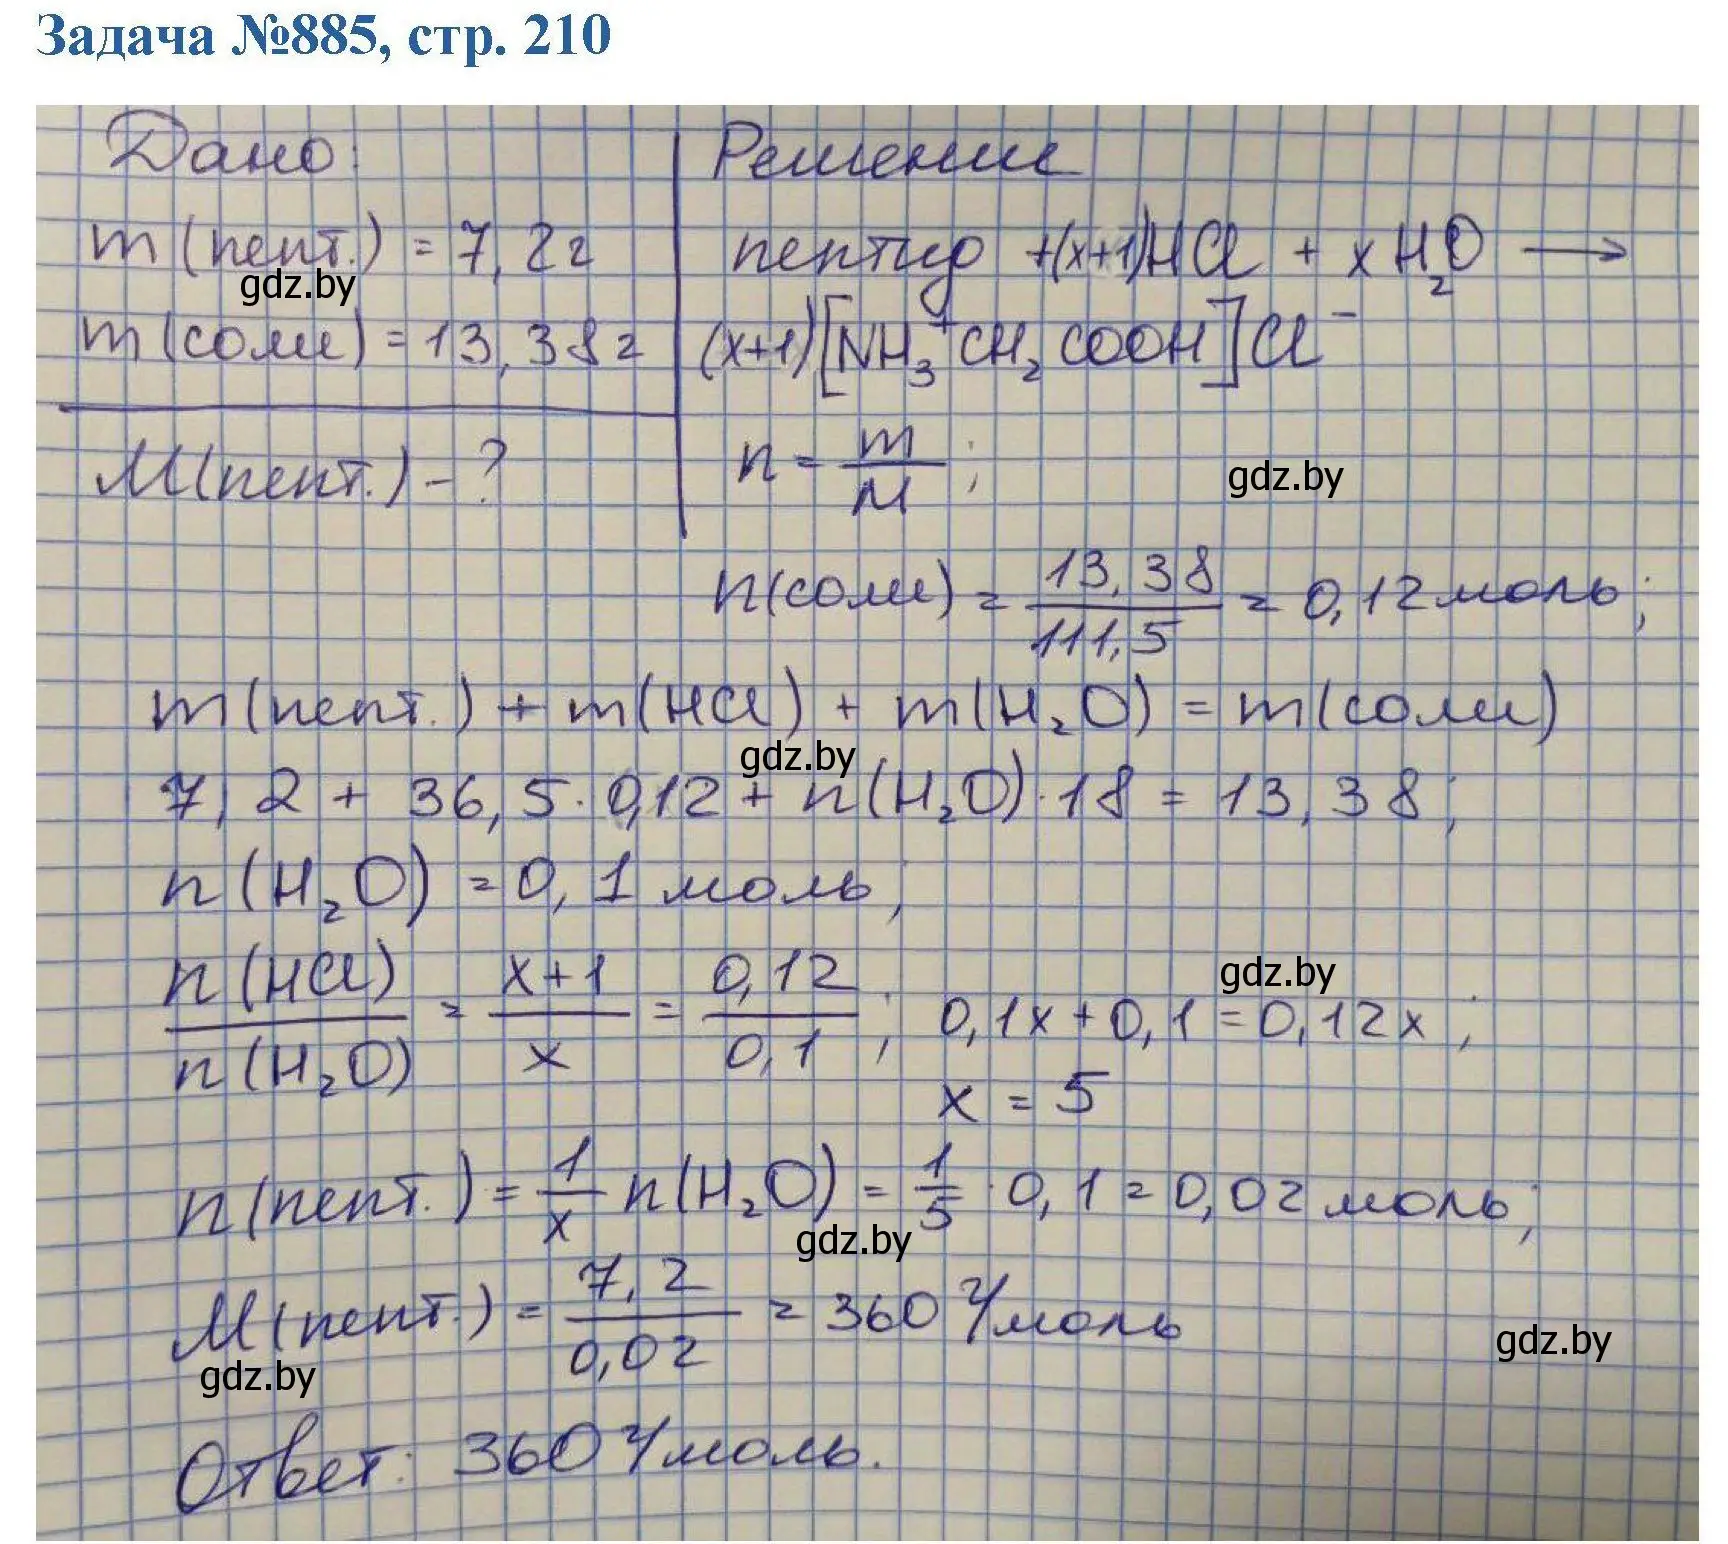 Задача №885, стр. 210
Дано:
m(пепт.) = 7,2г
gdz.by
m(соли) = 13,38г
M(пепт.) - ?
Решение
пептид +(x+1)HCl + xH₂O →
(x+1)[NH₃⁺CH₂COOH]Cl⁻
n = m/M;
gdz.by
n(соли) = 13,38/111,5 = 0,12 моль;
m(пепт.) + m(HCl) + m(H₂O) = m(соли)
gdz.by
7,2 + 36,5·0,12 + n(H₂O)·18 = 13,38;
n(H₂O) = 0,1 моль;
n(HCl)/n(H₂O) = x+1/x = 0,12/0,1; 0,1x+0,1=0,12x;
gdz.by
x = 5
n(пепт.) = 1/x n(H₂O) = 1/5 · 0,1 = 0,02 моль;
gdz.by
M(пепт.) = 7,2/0,02 = 360 г/моль
gdz.by
gdz.by
Ответ: 360 г/моль.